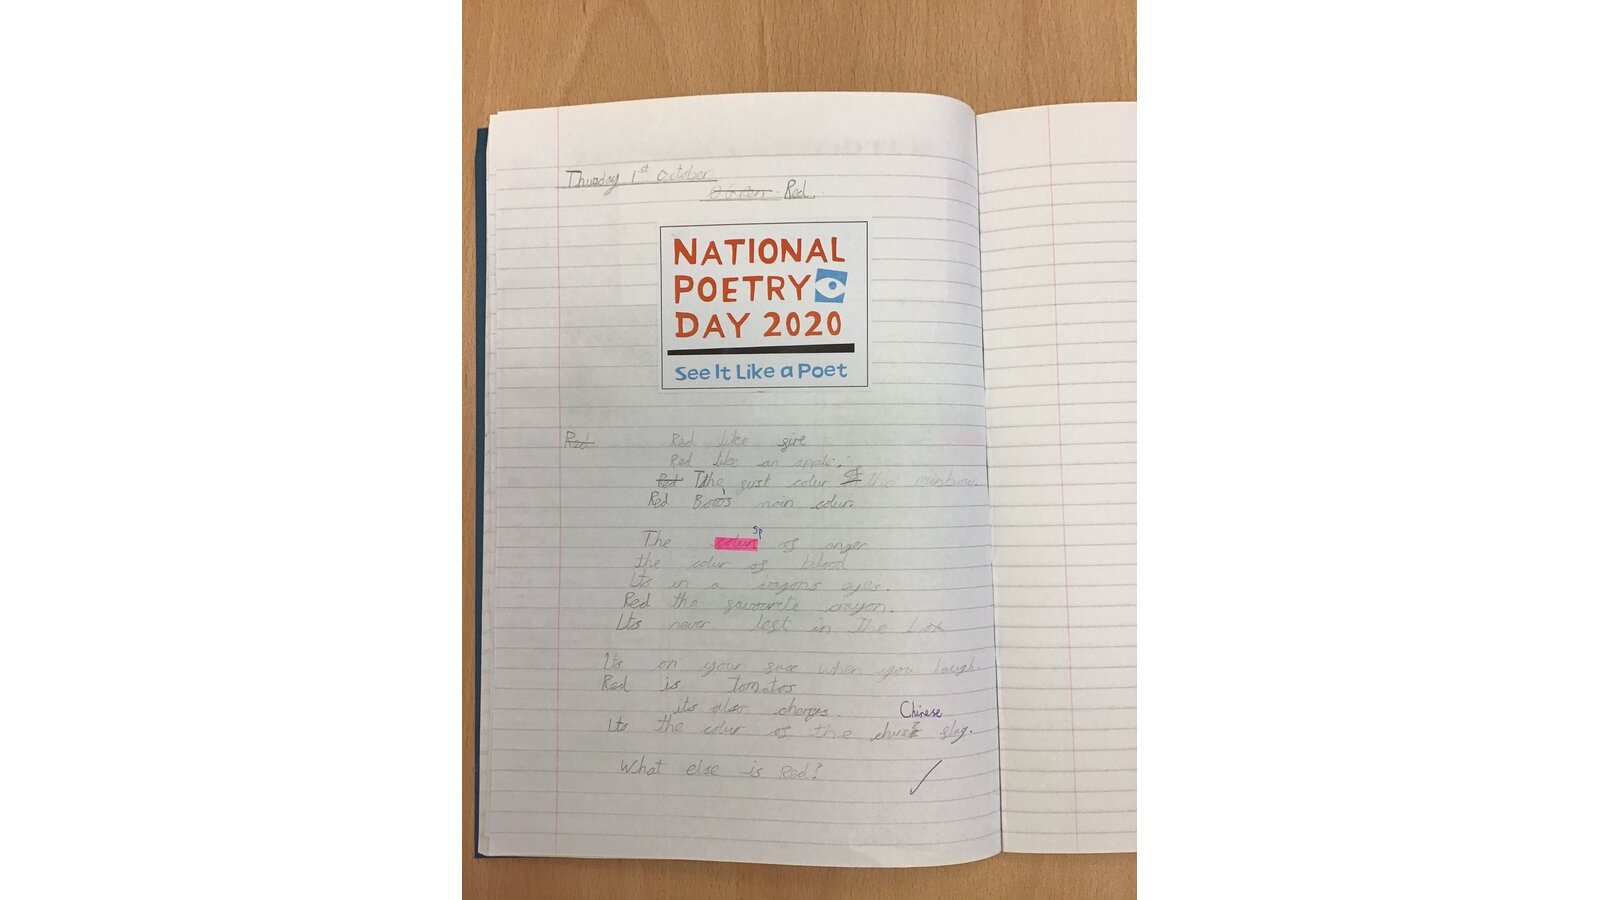 Thursday 1st October
Green Red.
NATIONAL
POETRY
DAY 2020
See It Like a Poet
Red Red like fire
Red like an apple.
Red The first colur of the rainbow.
Red Boro's main colur.
sp
The colur of anger
the colur of blood
Its in a dragons eyes.
Red the favourete crayon.
Its never left in the box
Its on your face when you laugh.
Red is tomatos
its also cherrys.
Chinese
Its the colur of the flag.
What else is Red?